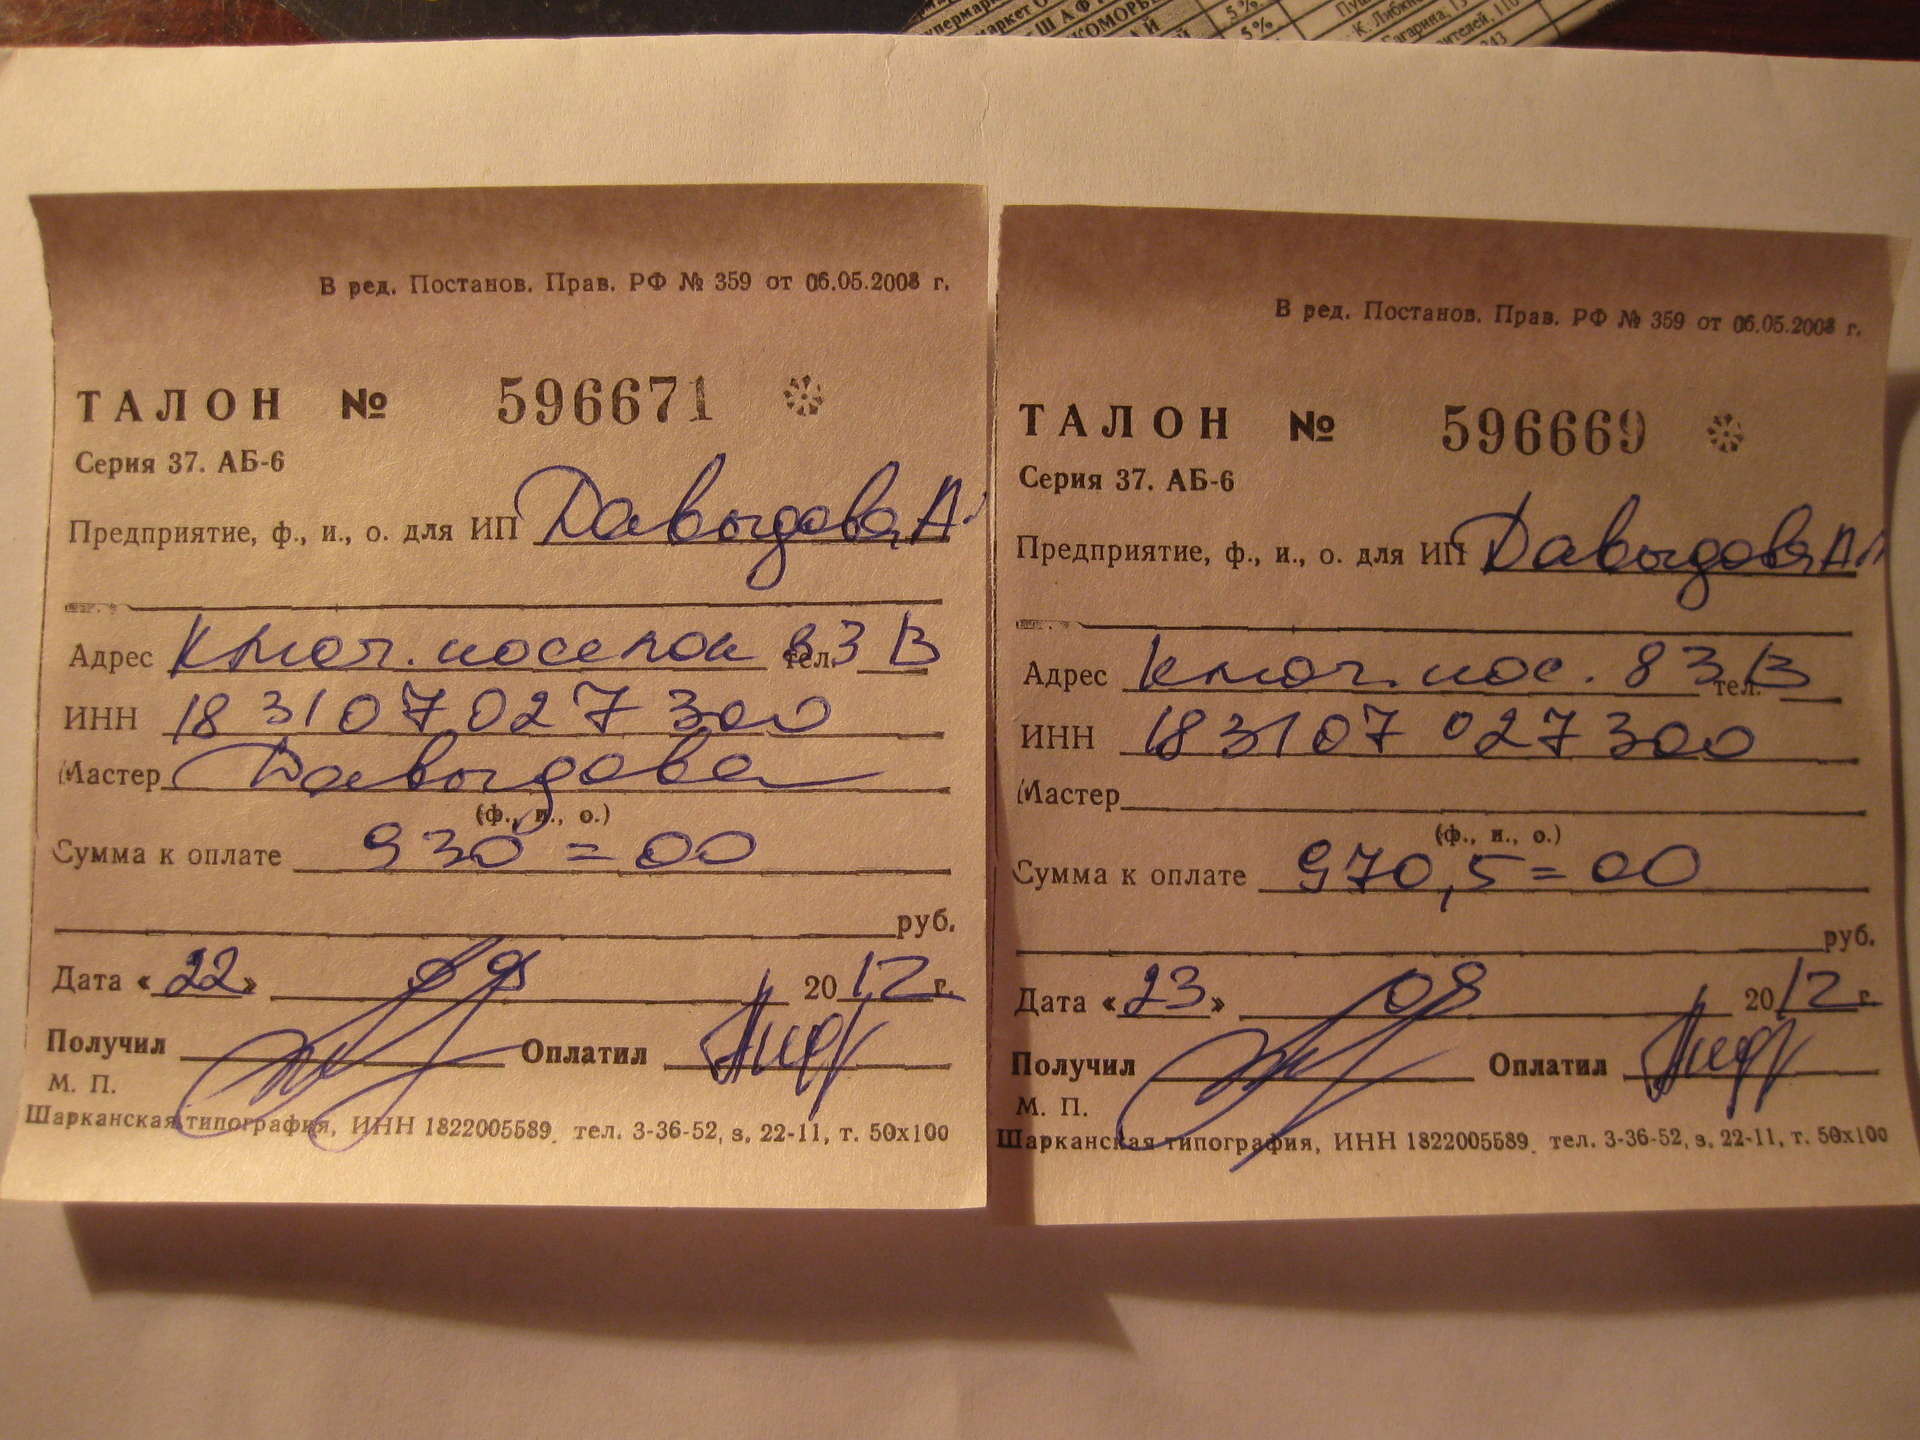 К. Либкн
5%
5%
КОМОРЬЕ
243
В ред. Постанов. Прав. РФ № 359 от 06.05.2008 г.
ТАЛОН № 596671
Серия 37. АБ-6
Предприятие, ф., и., о. для ИП Давыдова А.
Адрес Ключ. поселок 83 В тел.
ИНН 183107027300
Мастер Давыдова
(ф., и., о.)
Сумма к оплате 930=00
руб.
Дата «22» 08 2012 г.
Получил Оплатил
М. П.
Шарканская типография, ИНН 1822005589. тел. 3-36-52, з. 22-11, т. 50х100
В ред. Постанов. Прав. РФ № 359 от 06.05.2008 г.
ТАЛОН № 596669
Серия 37. АБ-6
Предприятие, ф., и., о. для ИП Давыдова А.
Адрес Ключ. пос. 83 В тел.
ИНН 183107027300
Мастер
(ф., и., о.)
Сумма к оплате 970,5=00
руб.
Дата «23» 08 2012 г.
Получил Оплатил
М. П.
Шарканская типография, ИНН 1822005589. тел. 3-36-52, з. 22-11, т. 50х100